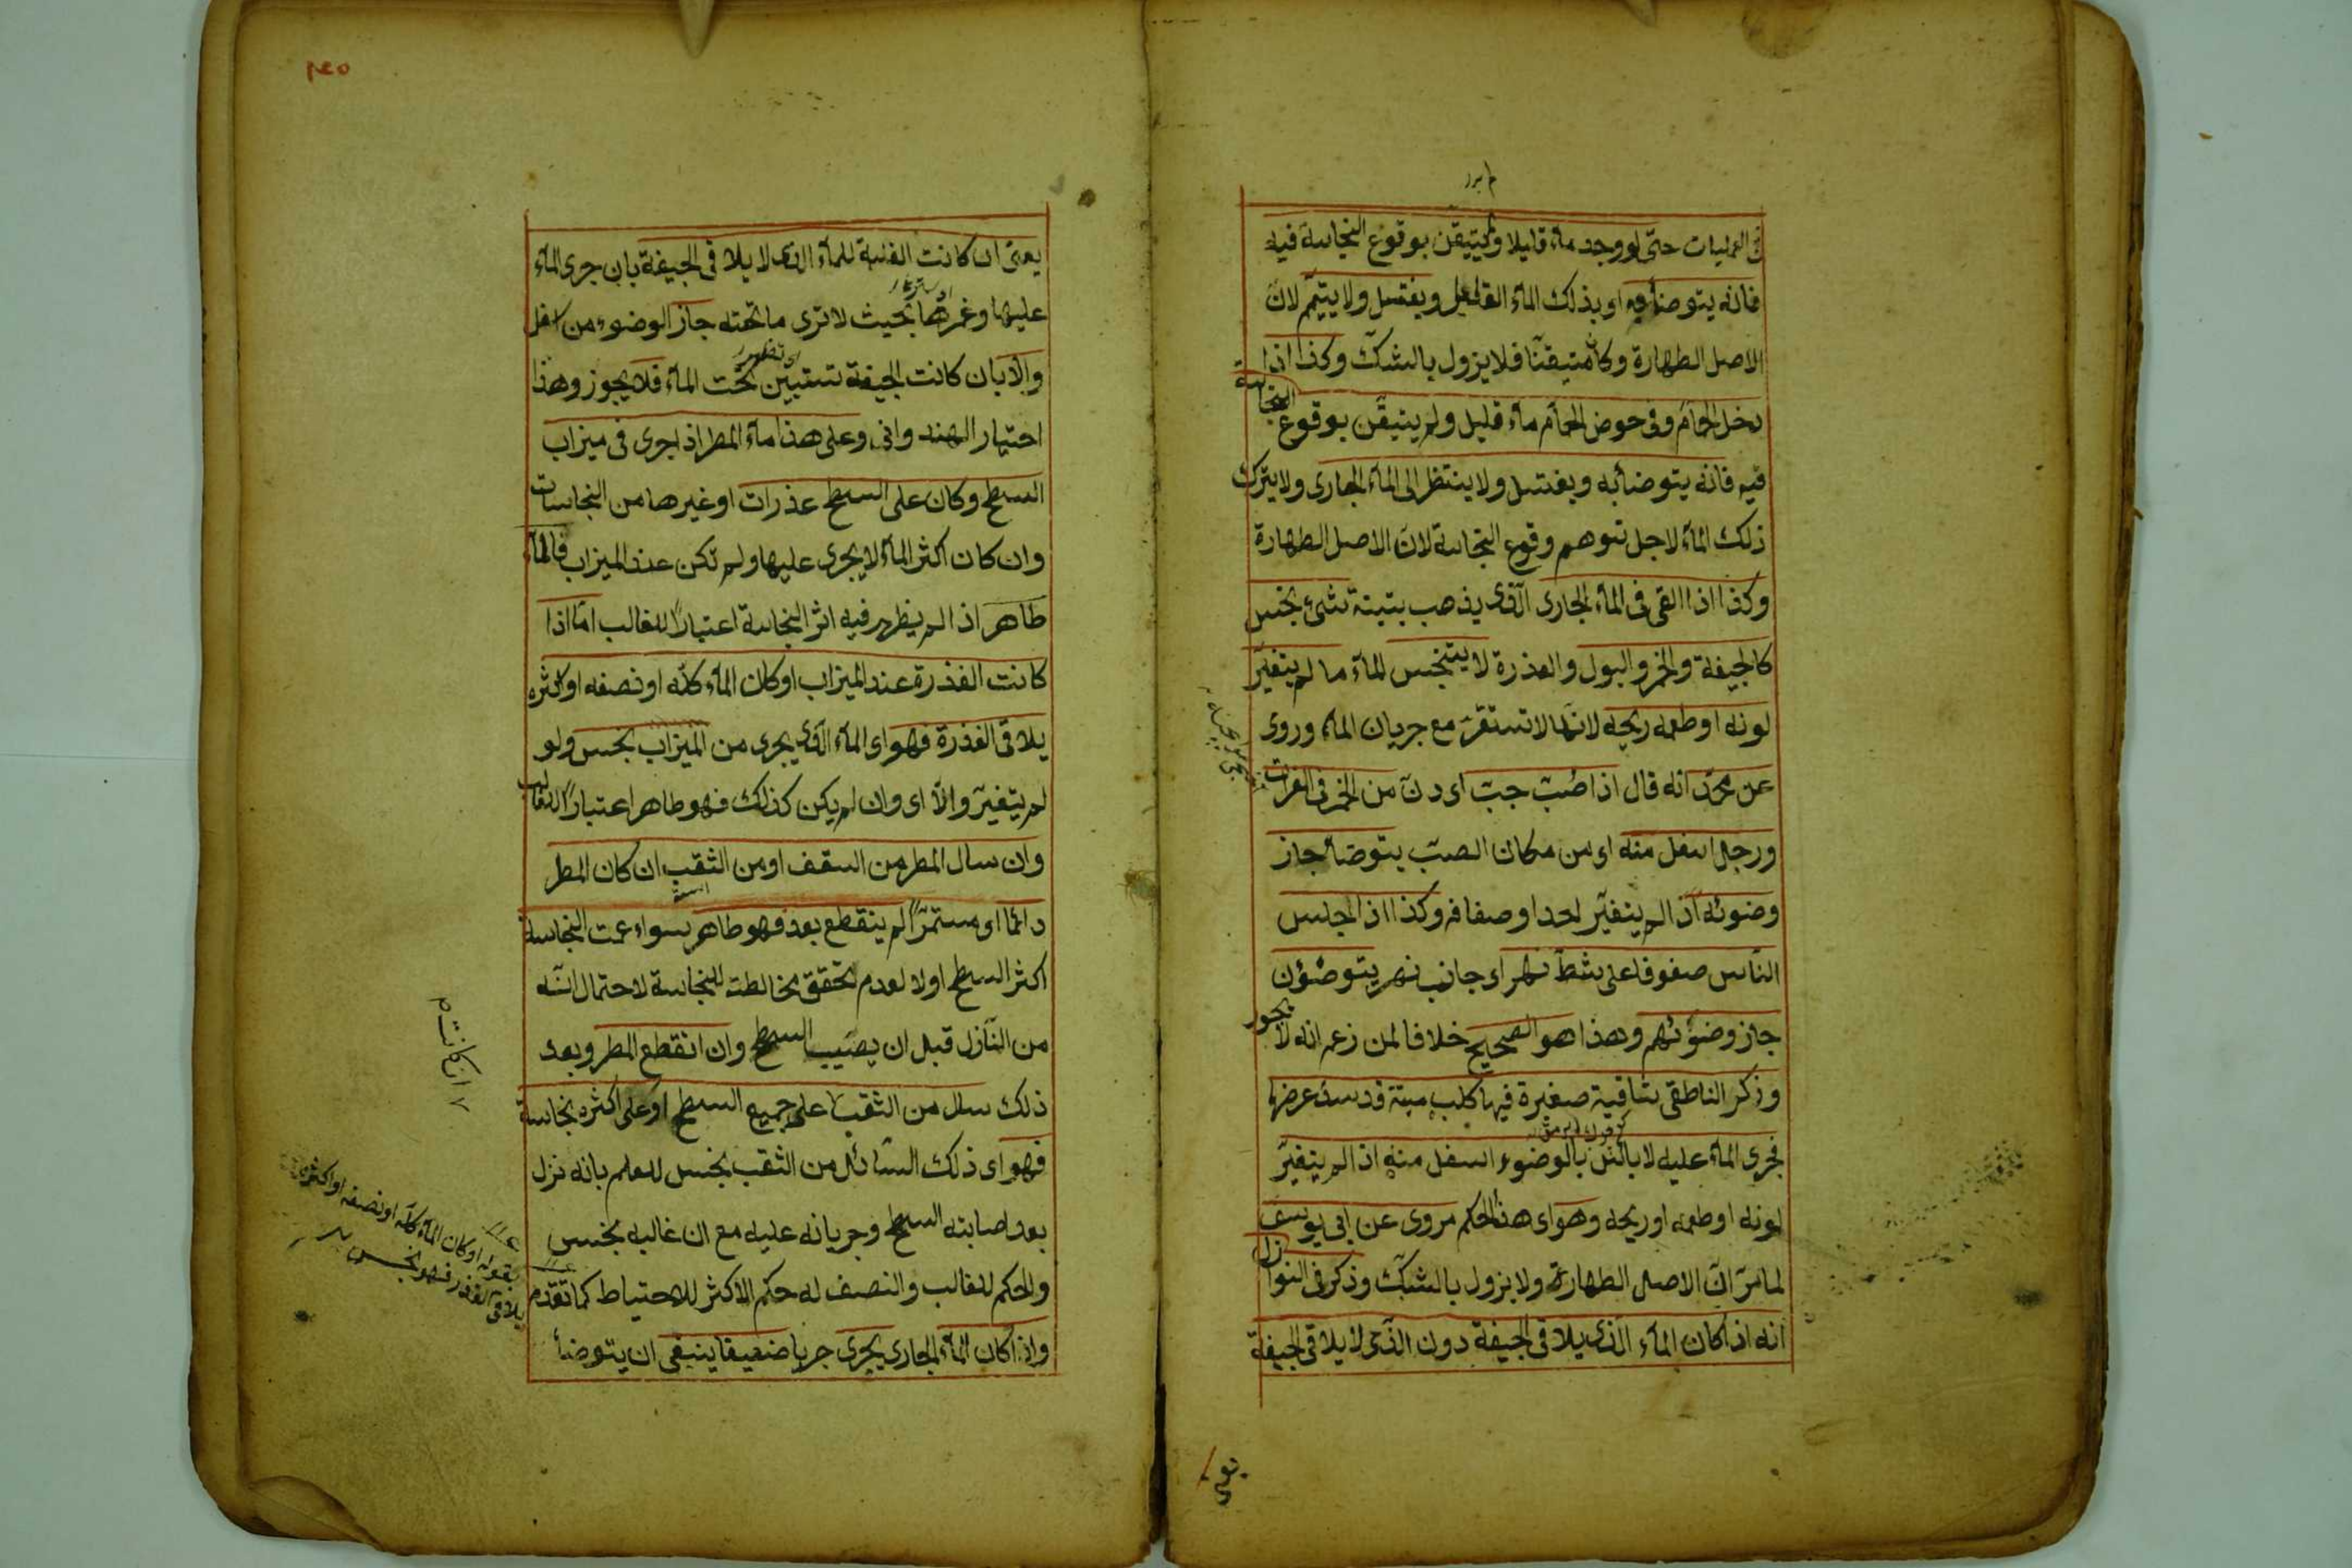 في العمليات حتى لو وجد ماء قليلا ولم يتيقن بوقوع النجاسة فيه
فانه يتوضأ به او بذلك الماء القليل ويغتسل ولا يتيمم لان
الاصل الطهارة وكان متيقنا فلا يزول بالشك وكذا اذا
دخل الحمام وفى حوض الحمام ماء قليل ولم يتيقن بوقوع النجاسة
فيه فانه يتوضأ به ويغتسل ولا ينتظر الى الماء الجارى ولا يترك
ذلك الماء لاجل توهم وقوع النجاسة لان الاصل الطهارة
وكذا اذا القى فى الماء الجارى الذى يذهب بتبنة شئ نجس
كالجيفة والخمر والبول والعذرة لا يتنجس الماء ما لم يتغير
لونه او طعمه ريحه لانها لا تستقر مع جريان الماء وروى
عن محمد انه قال اذا صب جب اى دن من الخمر فى الفرات
ورجل اسفل منه اى من مكان الصب يتوضأ جاز
وضوئه اذا لم يتغير احد اوصافه وكذا اذا جلس
الناس صفوفا على شط نهر اى جانب نهر يتوضؤن
جاز وضوئهم وهذا هو الصحيح خلافا لمن زعم انه لا يجوز
وذكر الناطقى ساقية صغيرة فيها كلب ميتة قد سد عرضها
فجرى الماء عليه لا بأس بالوضوء اسفل منه اذا لم يتغير
لونه او طعمه او ريحه وهو اى هذا الحكم مروى عن ابى يوسف
لما مر ان الاصل الطهارة ولا يزول بالشك وذكر فى النوازل
انه اذا كان الماء الذى يلاقى الجيفة دون الذى لا يلاقى الجيفة
يعنى
يعنى ان كانت الغلبة للماء الذى لا يلاقى الجيفة بان جرى الماء
عليها وغمرها بحيث لا ترى ما تحته جاز الوضوء من اسفل
والا بان كانت الجيفة تستبين تحت الماء فلا يجوز وهذا
اختيار الهندوانى وعلى هذا ماء المطر اذا جرى فى ميزاب
السطح وكان على السطح عذرات او غيرها من النجاسات
وان كان اكثر الماء لا يجرى عليها ولم تكن عند الميزاب فالماء
طاهر اذا لم يظهر فيه اثر النجاسة اعتبارا للغالب اما اذا
كانت العذرة عند الميزاب او كان الماء كله او نصفه او اكثره
يلاقى العذرة فهو اى الماء الذى يجرى من الميزاب نجس ولو
لم يتغير والا اى وان لم يكن كذلك فهو طاهر اعتبارا للغالب
وان سال المطر من السقف او من الثقب ان كان المطر
دائما او مستمرا لم ينقطع بعد فهو طاهر سواء عمت النجاسة
اكثر السطح او لا لعدم تحقق مخالطته للنجاسة لاحتمال انه
من النازل قبل ان يصيب السطح وان انقطع المطر وبعد
ذلك سال من الثقب على جميع السطح او على اكثره نجاسة
فهو اى ذلك السائل من الثقب نجس للعلم بانه نزل
بعد اصابته السطح وجريانه عليه مع ان غالبه نجس
والحكم للغالب والنصف له حكم الاكثر للاحتياط كما تقدم
واذا كان الماء الجارى يجرى جريا ضعيفا ينبغى ان يتوضأ
ان كانت
بقوله او كان الماء كله او نصفه او اكثره
يلاقى العذر فهو نجس